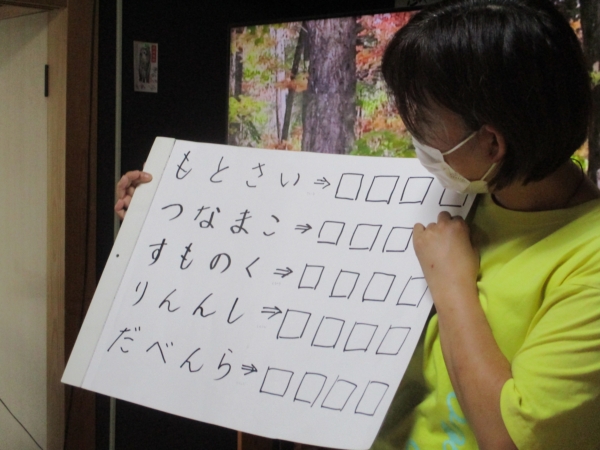 もとさい⇒□□□□
つなまこ⇒□□□
すものく⇒□□□□
りんんし⇒□□□□
だべんら⇒□□□□